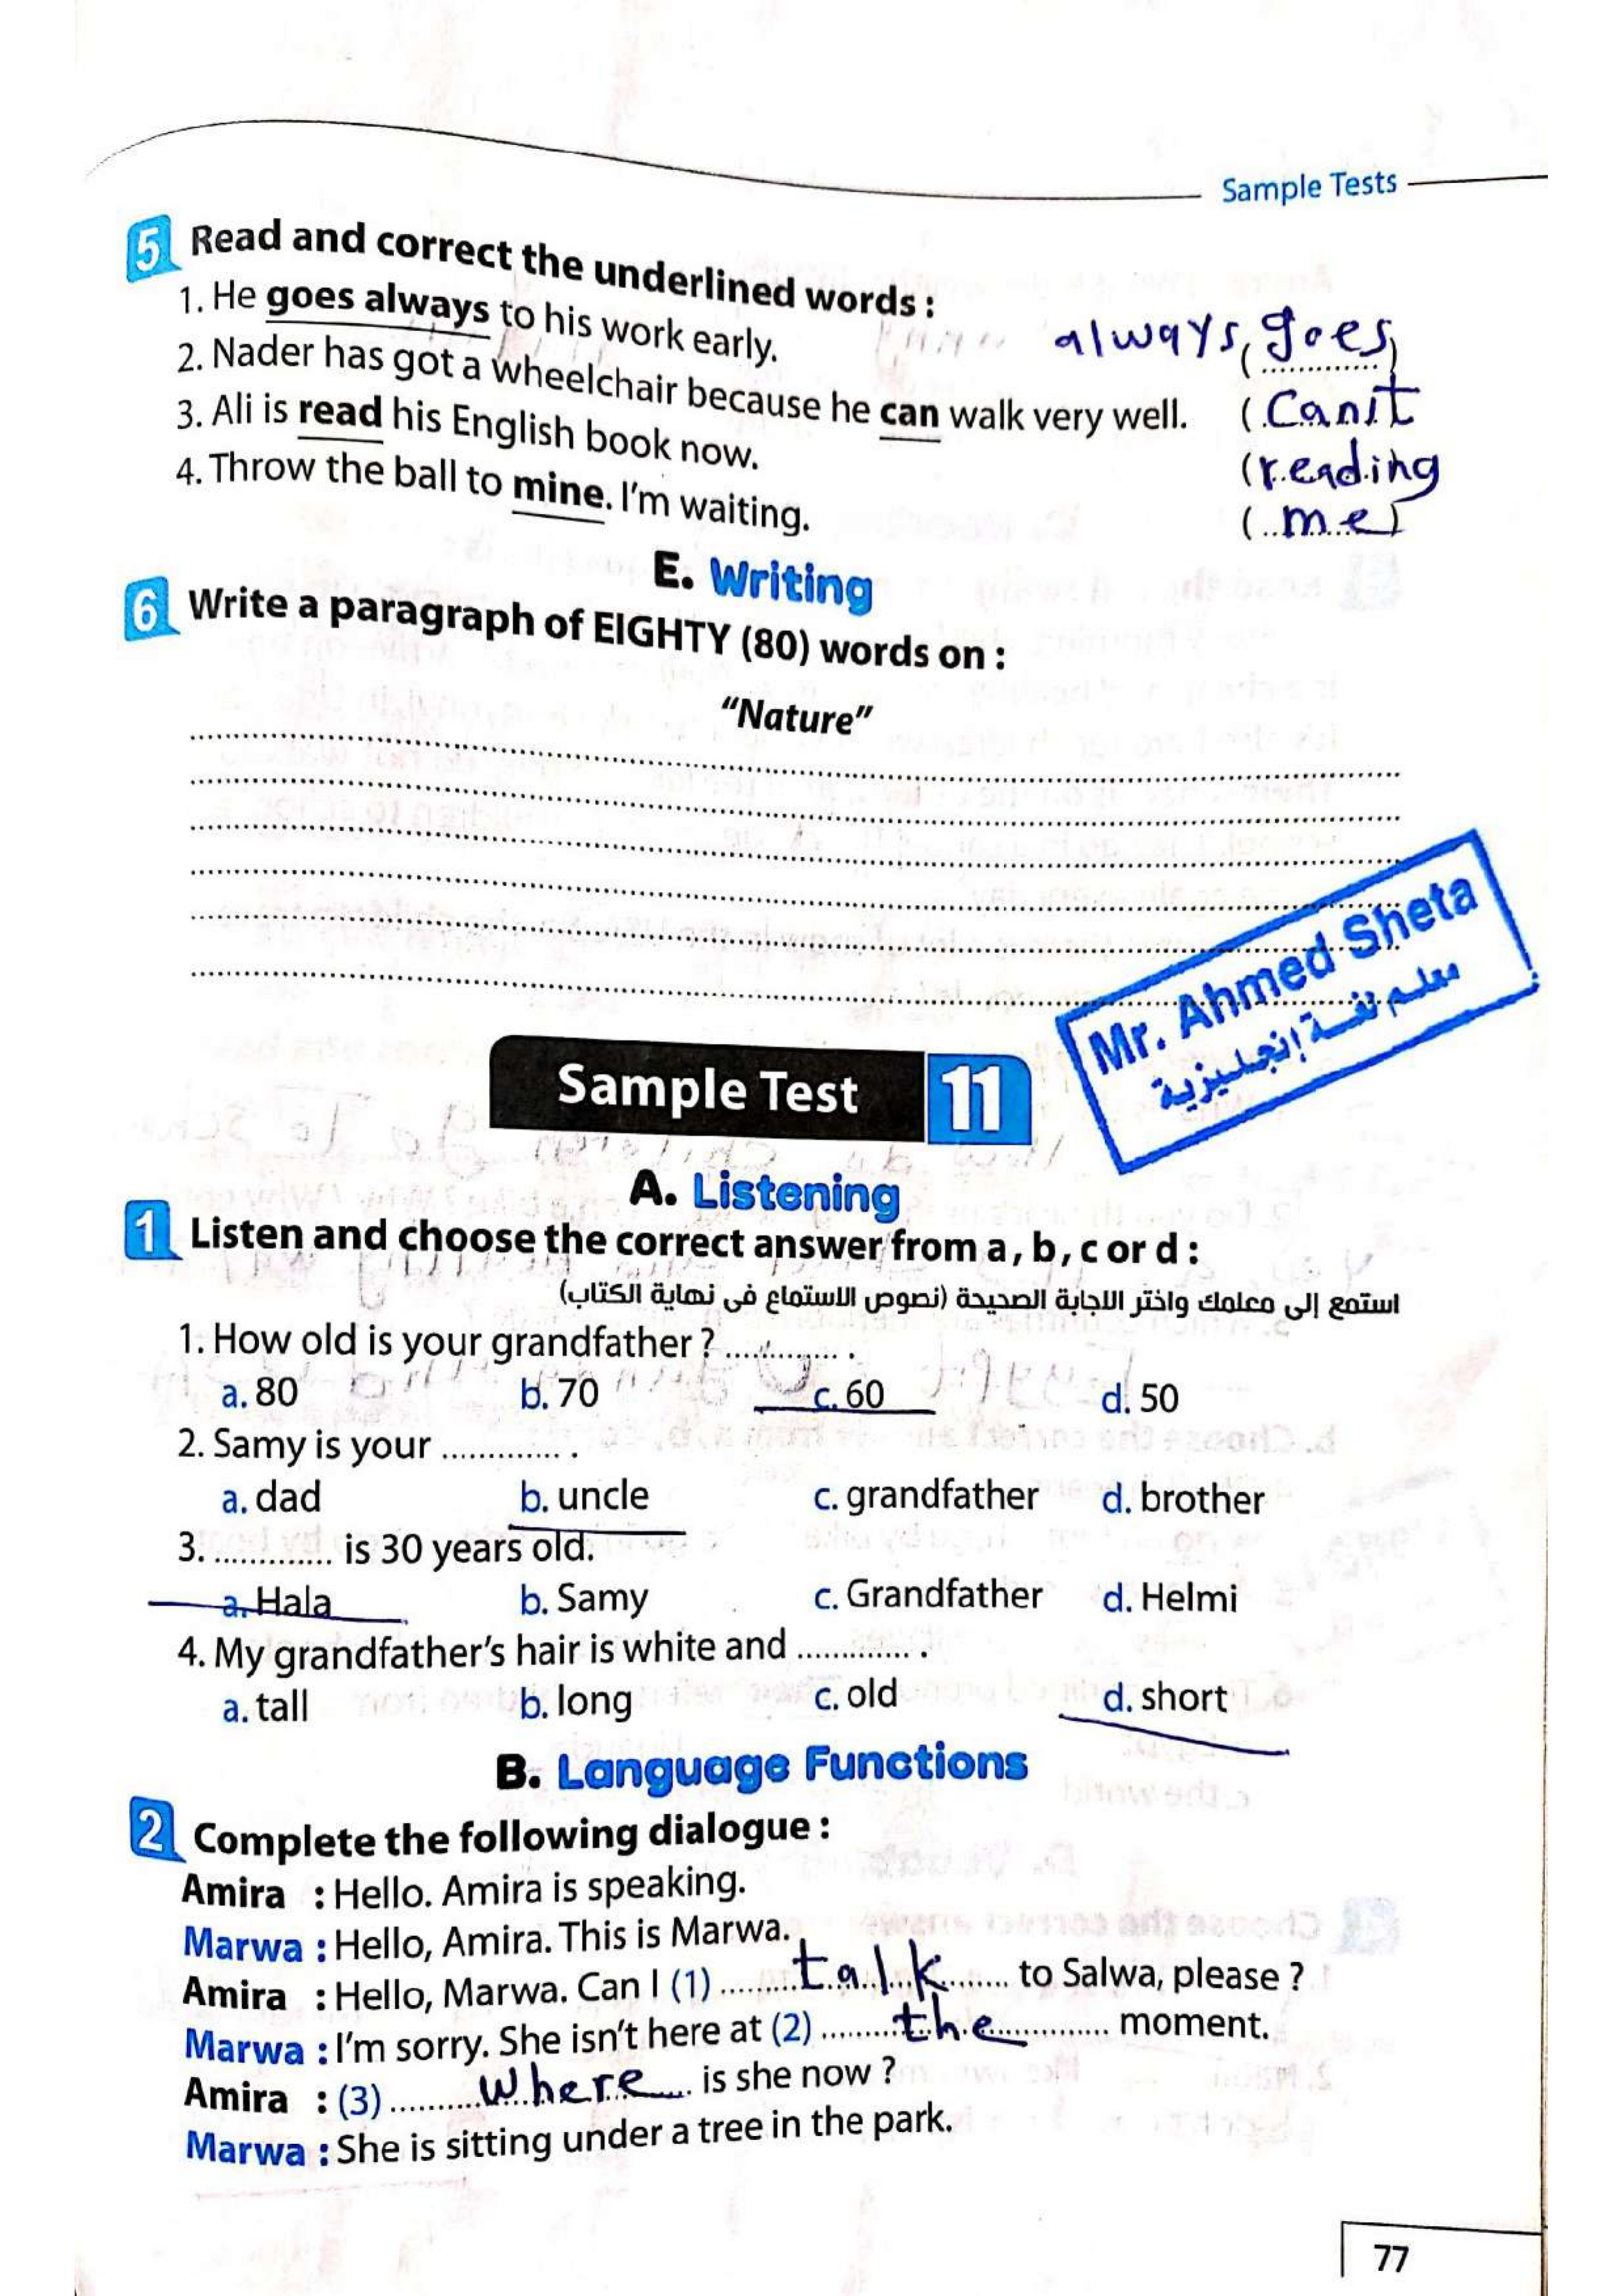 Sample Tests
5 Read and correct the underlined words :
1. He goes always to his work early. (.............) always goes
2. Nader has got a wheelchair because he can walk very well. (Can't
3. Ali is read his English book now. (reading
4. Throw the ball to mine. I'm waiting. (me)
E. Writing
6 Write a paragraph of EIGHTY (80) words on :
"Nature"
Mr. Ahmed Sheta
معلم لغة إنجليزية
Sample Test 11
A. Listening
1 Listen and choose the correct answer from a, b, c or d :
استمع إلى معلمك واختر الاجابة الصحيحة (نصوص الاستماع فى نهاية الكتاب)
1. How old is your grandfather ? ............. .
a. 80 b. 70 c. 60 d. 50
2. Samy is your ............. .
a. dad b. uncle c. grandfather d. brother
3. ............. is 30 years old.
a. Hala b. Samy c. Grandfather d. Helmi
4. My grandfather's hair is white and ............. .
a. tall b. long c. old d. short
B. Language Functions
2 Complete the following dialogue :
Amira : Hello. Amira is speaking.
Marwa : Hello, Amira. This is Marwa.
Amira : Hello, Marwa. Can I (1) talk to Salwa, please ?
Marwa : I'm sorry. She isn't here at (2) the moment.
Amira : (3) where is she now ?
Marwa : She is sitting under a tree in the park.
77